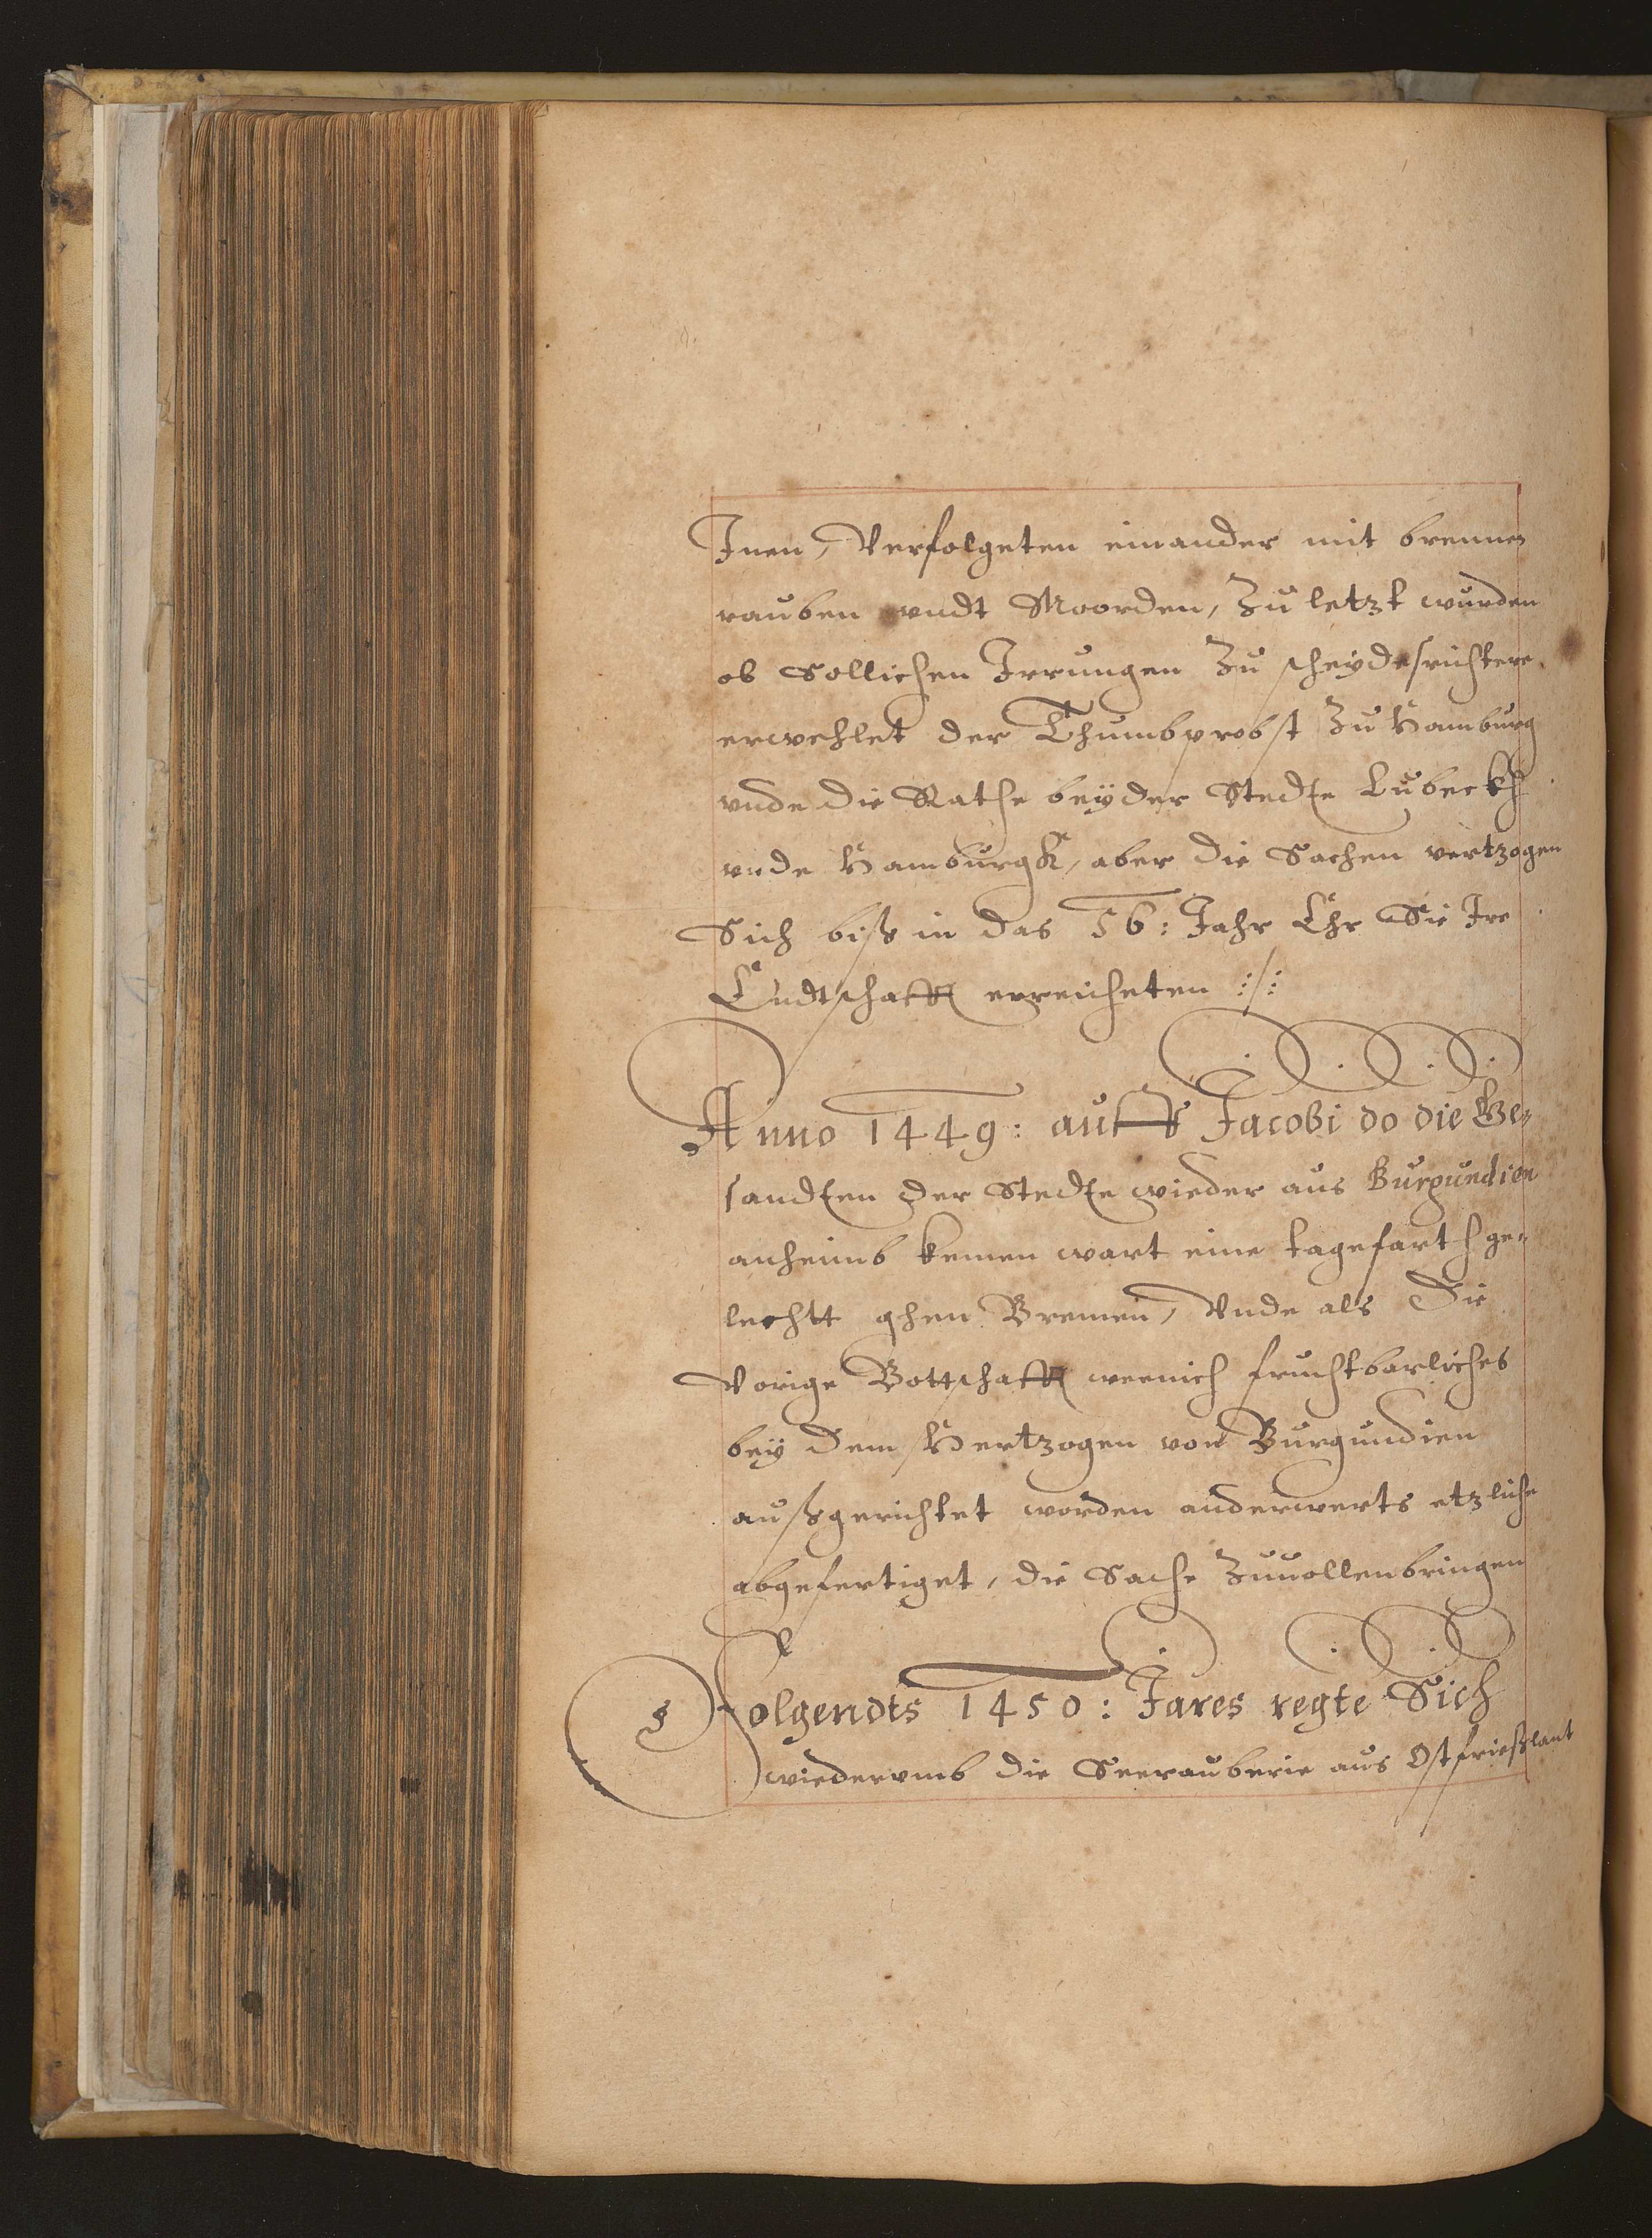 Inen, Verfolgeten einander mit brennen
rauben vndt Moorden, Zu letzt wurden
ob Sollichen Irrungen Zu scheydesrichtere
erwehlet der Thumbprobst Zu Hamburg
vnde die Rathe beyder Stedte Lubeckh
vnde Hamburgk, aber die Sachen vertzogen
Sich biß in das 56: Jahr Ehr Sie Ire
Endtschafft erreicheten :/:
Anno 1449: auffs Jacobi do die Ge-
sandten der Stedte wieder aus Burgundien
anheimb kemen wart eine tagefarth ge-
lechtt ghen Bremen, Vnde als Die
Vorige Bottschafft weenich fruchtbarliches
bey Dem Hertzogen von Burgundien
außgerichtet worden anderwerts etzliche
abgefertiget, die Sache Zuuollenbringen
Folgendts 1450: Jares regte Sich
wiederumb die Seerauberie aus Ostfrießlant